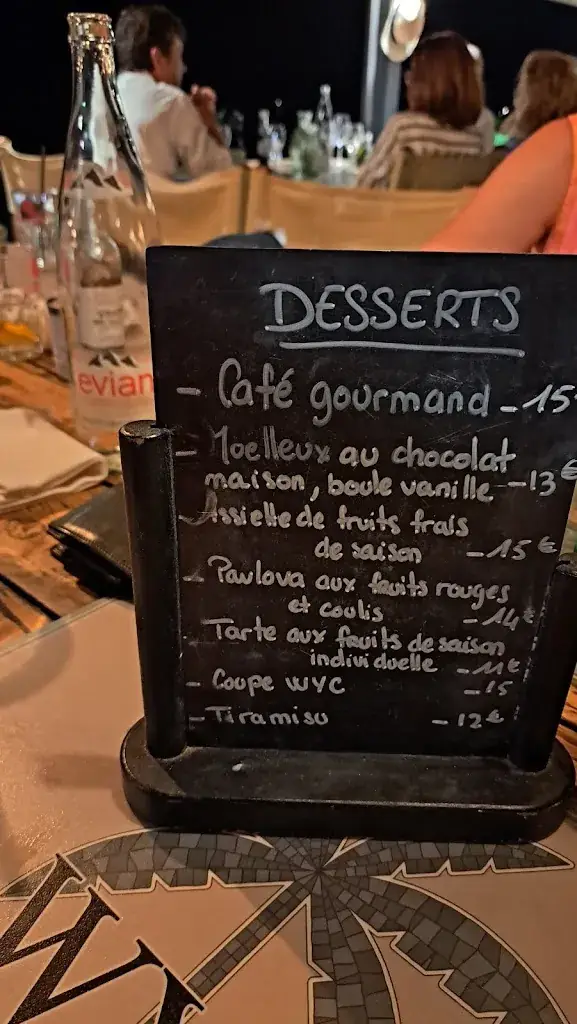 DESSERTS
- Café gourmand - 15
- Moelleux au chocolat
maison, boule vanille - 13€
- Assiette de fruits frais
de saison - 15€
- Pavlova aux fruits rouges
et coulis - 14€
- Tarte aux fruits de saison
individuelle - 11€
- Coupe WYC - 15
- Tiramisu - 12€
evian
W